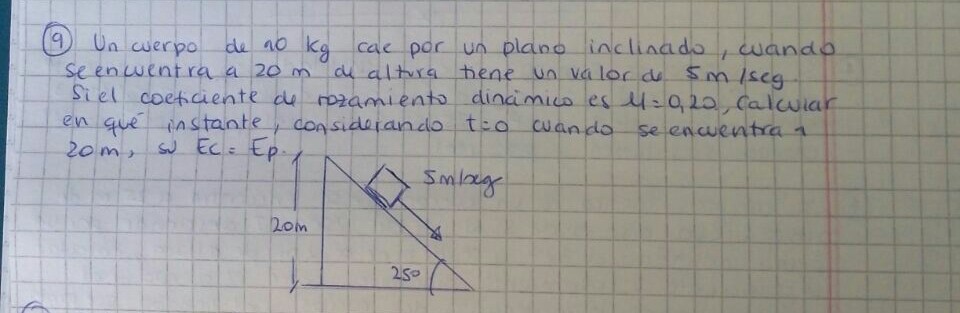 9 Un cuerpo de 10 kg cae por un plano inclinado, cuando
se encuentra a 20 m de altura tiene un valor de 5m/seg.
Si el coeficiente de rozamiento dinámico es M=0,20, Calcular
en qué instante, considerando t=0 cuando se encuentra a
20m, su Ec = Ep.
5m/seg
20m
25º